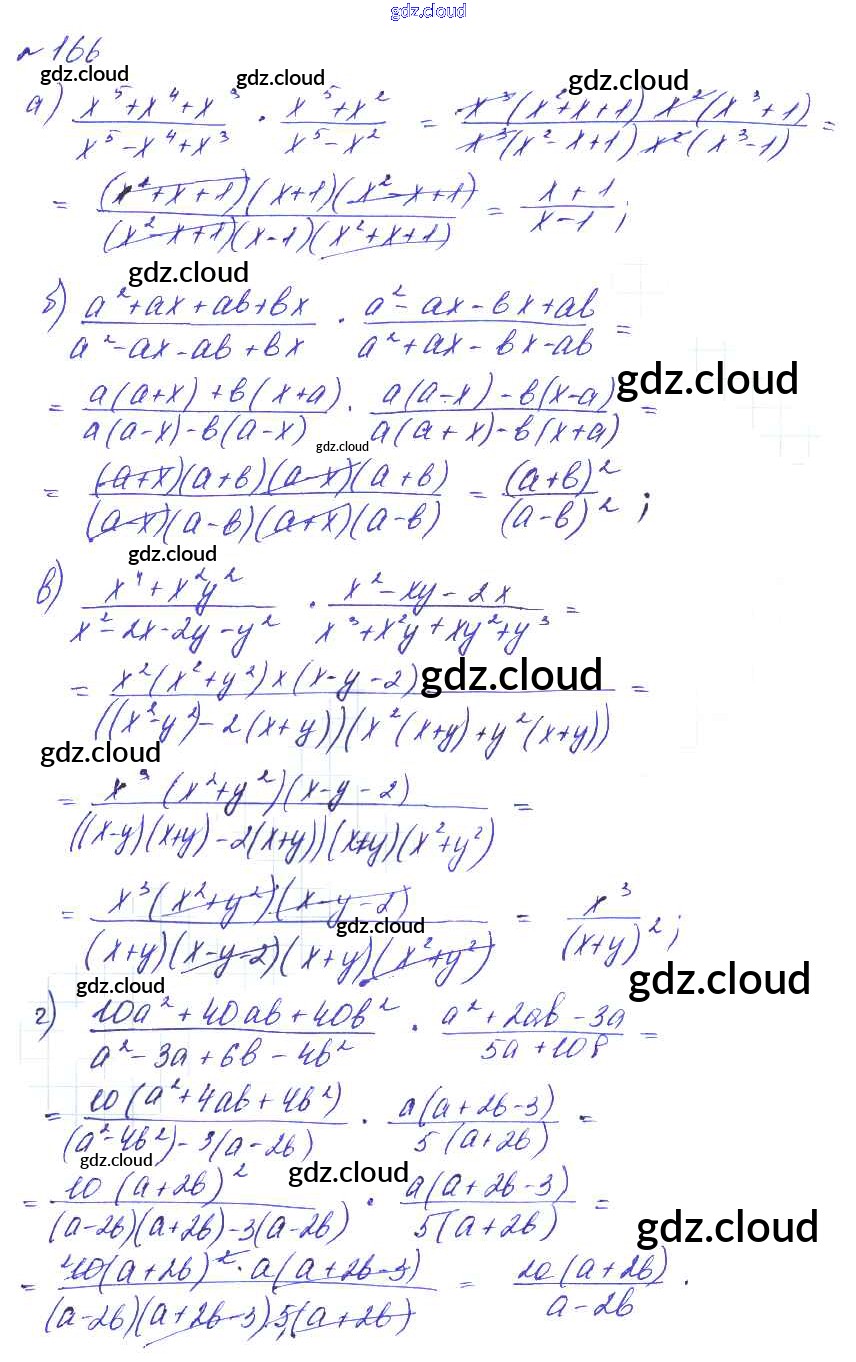 gdz.cloud
№ 166
gdz.cloud gdz.cloud
а) (x⁵+x⁴+x³)/(x⁵−x⁴+x³) · (x⁵+x²)/(x⁵−x²) = (x³(x²+x+1) x²(x³+1))/(x³(x²−x+1) x²(x³−1)) =
= ((x²+x+1)(x+1)(x²−x+1))/((x²−x+1)(x−1)(x²+x+1)) = (x+1)/(x−1);
gdz.cloud
б) (a²+ax+ab+bx)/(a²−ax−ab+bx) · (a²−ax−bx+ab)/(a²+ax−bx−ab) =
gdz.cloud
= (a(a+x)+b(x+a))/(a(a−x)−b(a−x)) · (a(a−x)−b(x−a))/(a(a+x)−b(x+a)) =
gdz.cloud
= ((a+x)(a+b)(a−x)(a+b))/((a−x)(a−b)(a+x)(a−b)) = (a+b)²/(a−b)²;
gdz.cloud
в) (x⁴+x²y²)/(x²−2x−2y−y²) · (x²−xy−2x)/(x³+x²y+xy²+y³) =
= (x²(x²+y²)x(x−y−2))/(((x²−y²)−2(x+y))(x²(x+y)+y²(x+y))) =
gdz.cloud
gdz.cloud
= (x³(x²+y²)(x−y−2))/(((x−y)(x+y)−2(x+y))(x+y)(x²+y²)) =
= (x³(x²+y²)(x−y−2))/((x+y)(x−y−2)(x+y)(x²+y²)) = x³/(x+y)²;
gdz.cloud
gdz.cloud gdz.cloud
г) (10a²+40ab+40b²)/(a²−3a+6b−4b²) · (a²+2ab−3a)/(5a+10b) =
= (10(a²+4ab+4b²))/((a²−4b²)−3(a−2b)) · (a(a+2b−3))/(5(a+2b)) =
gdz.cloud gdz.cloud
= (10(a+2b)²)/((a−2b)(a+2b)−3(a−2b)) · (a(a+2b−3))/(5(a+2b)) =
gdz.cloud
= (10(a+2b)²·a(a+2b−3))/((a−2b)(a+2b−3)5(a+2b)) = (2a(a+2b))/(a−2b).